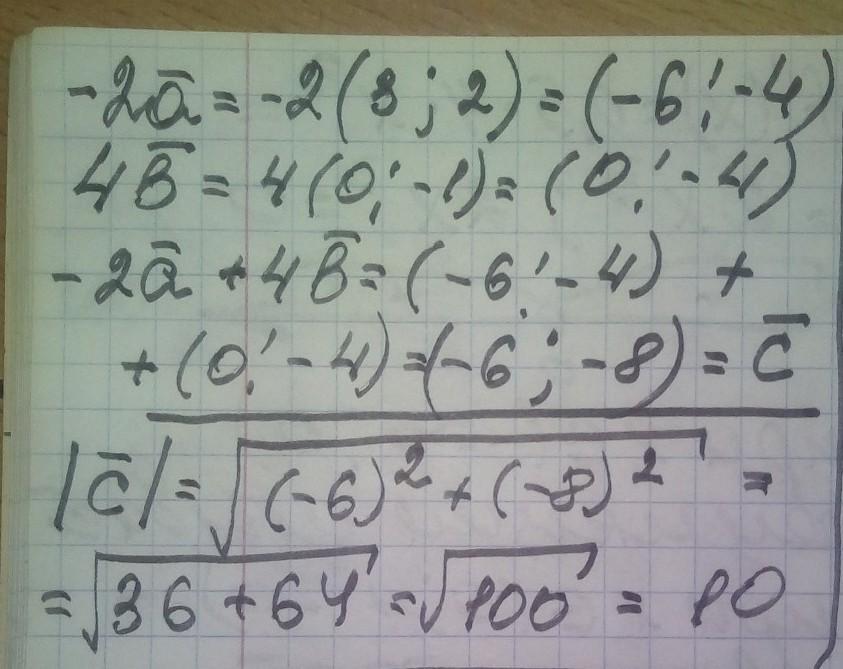 -2a̅ = -2(3 ; 2) = (-6 ; -4)
4B̅ = 4(0 ; -1) = (0 ; -4)
-2a̅ + 4B̅ = (-6 ; -4) +
+ (0 ; -4) = (-6 ; -8) = c̅
|c̅| = √((-6)² + (-8)²) =
= √(36 + 64) = √100 = 10